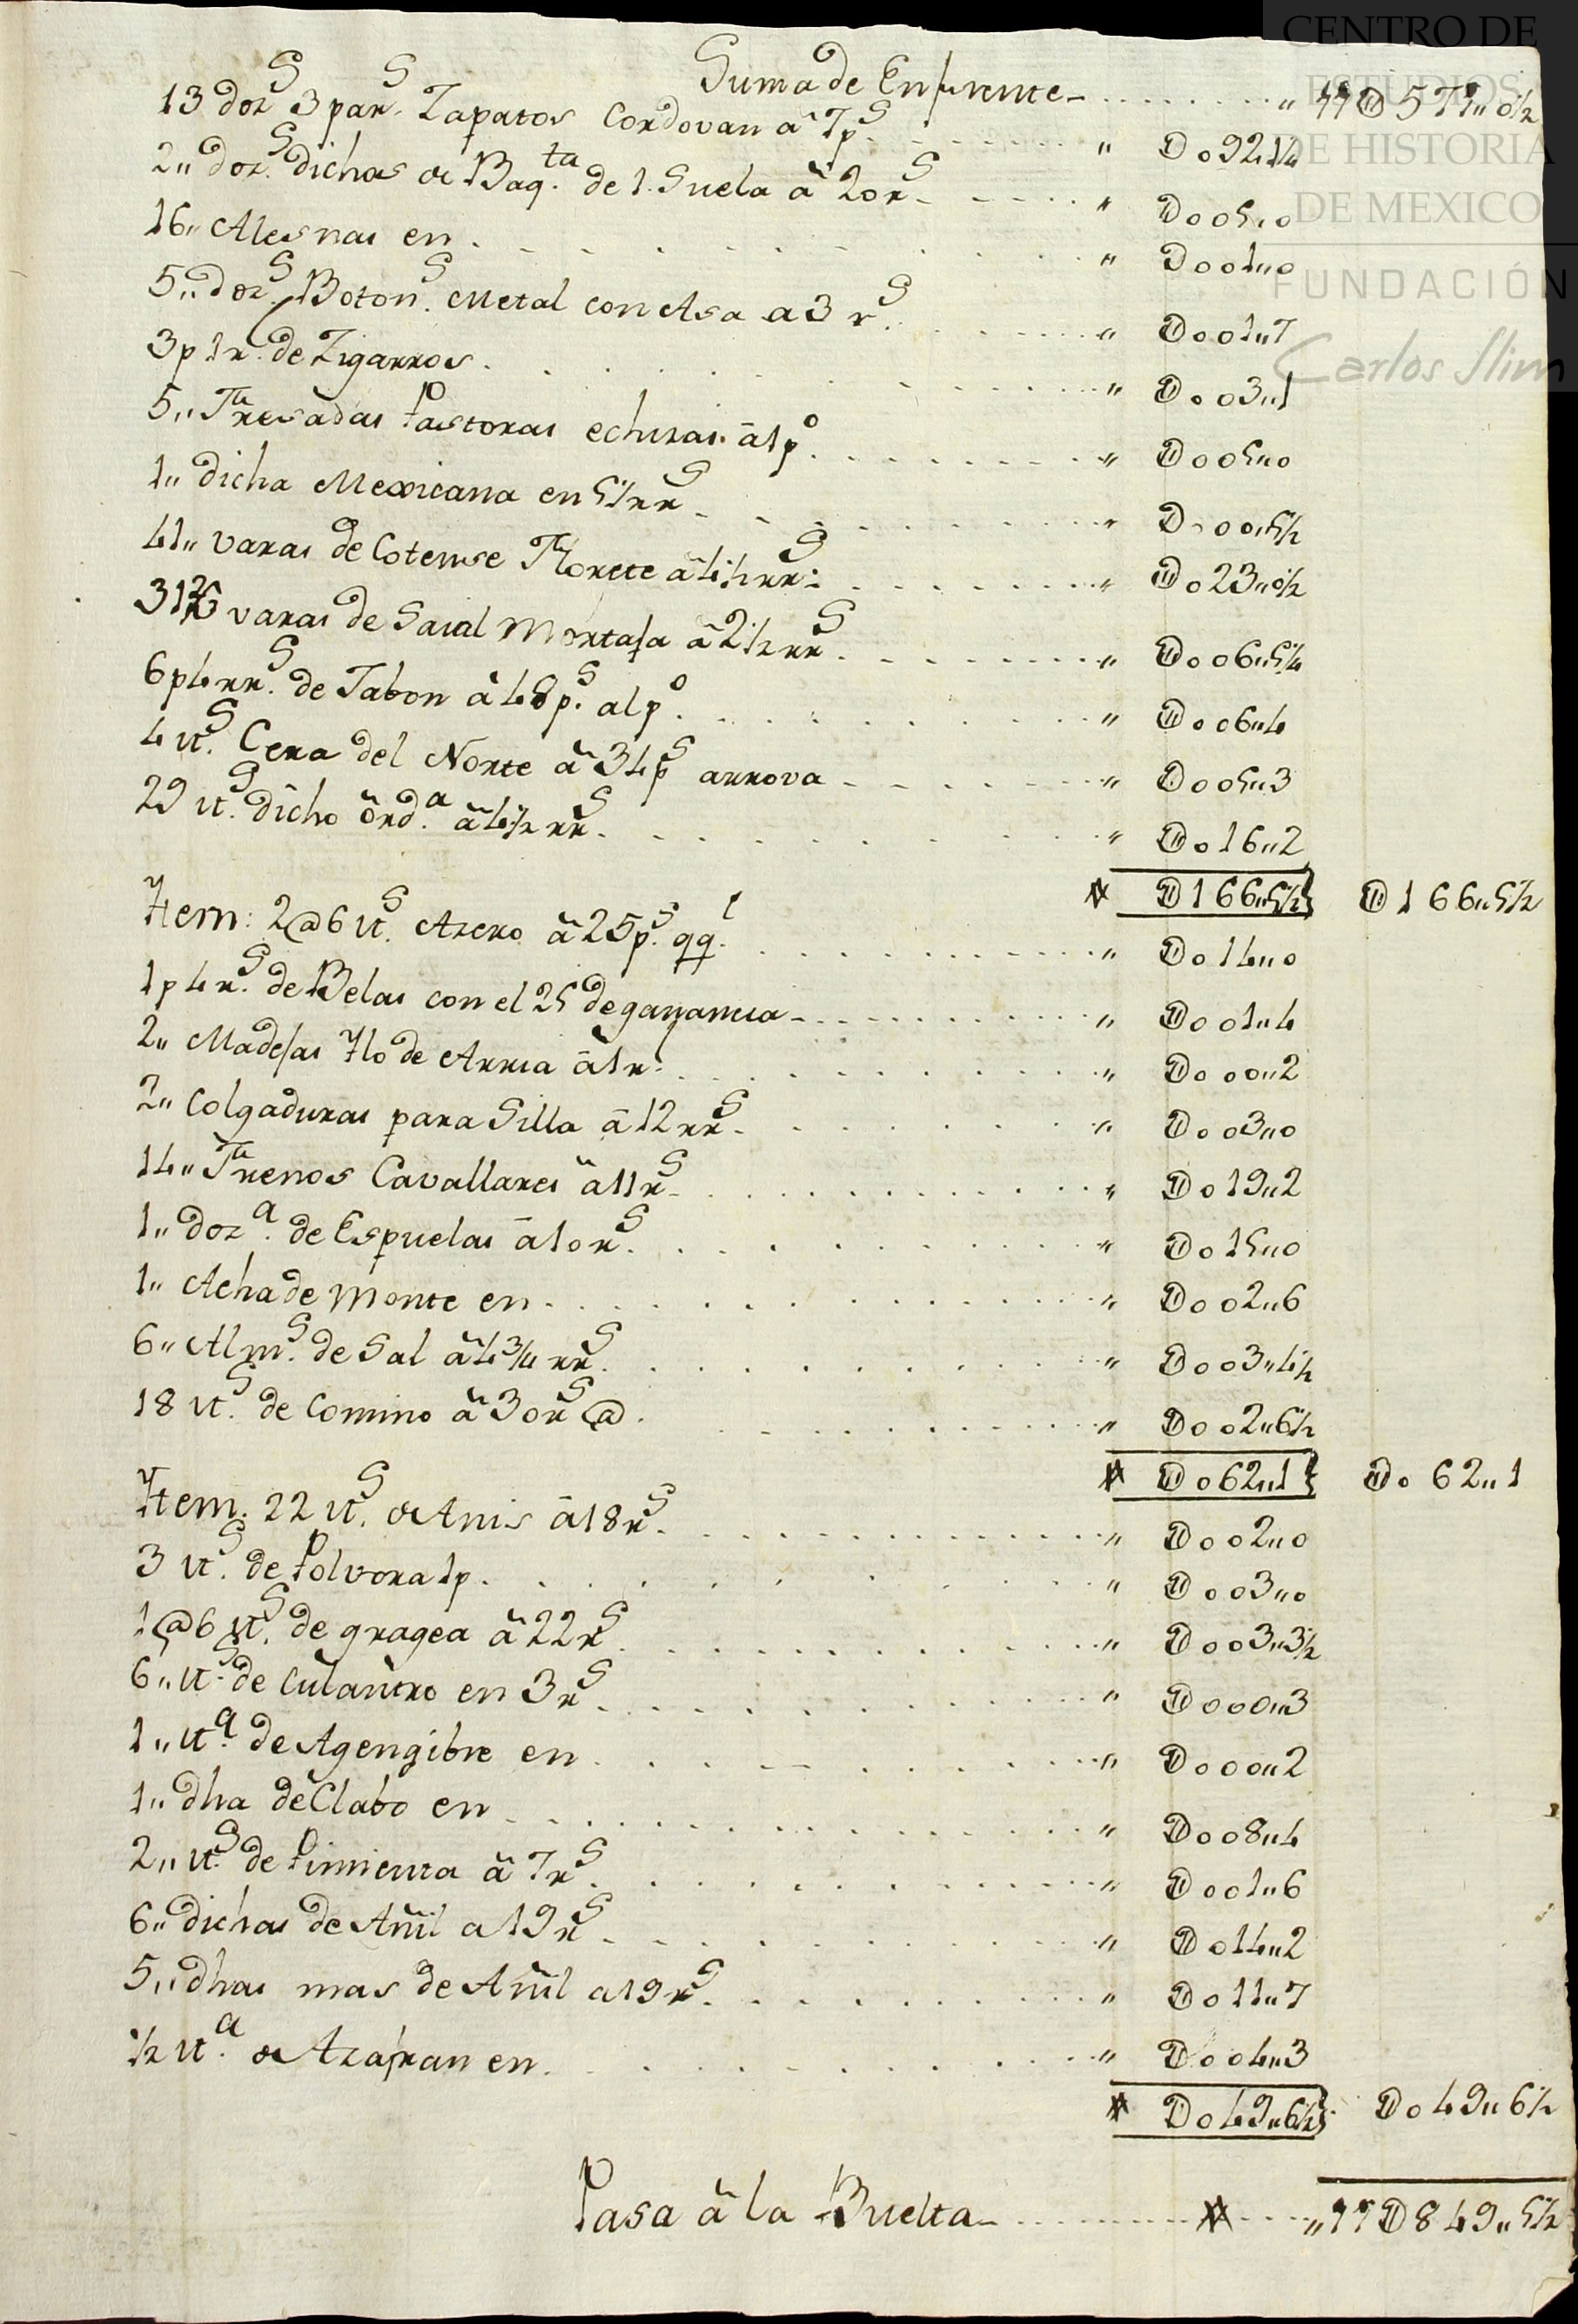 CENTRO DE
ESTUDIOS
DE HISTORIA
DE MEXICO
FUNDACIÓN
Carlos Slim
Suma de Enfrente " 11D571"0½
13 dozs 3 pars. Zapatos Cordovan â 7ps " D092"¼
2" dozs. dichos de Baqta. de 1. Suela â 20rs " D005"0
16" Alesnas en " D001"0
5" dozs. Botons. Metal con Asa a 3 rs. " D001"7
3p 1r. de Zigarros. " D003"1
5" Fresadas Pastoras echizas. â 1po. " D005"0
1" dicha Mexicana en 5½rrs " D000"5½
41" varas de Cotense Florete â 4½rrs. " D023"0½
varas de Saial Mortaja â 2½rrs. " D006"5¼
6p4rrs. de Jabon â 48ps. al po. " D006"4
4 lts. Cera del Norte â 34ps arrova " D005"3
29 lts. dicho ôrda. â 4½rrs. " D016"2
D166"5½ D166"5½
Ytem: 2@6 lts. Azero â 25ps. qql. " D014"0
1p4rs. de Belas con el 25 de ganancia " D001"4
2" Madejas Ylo de Arria â 1r. " D000"2
2" Colgaduras para Silla â 12rrs " D003"0
14" Frenos Cavallares â 11rs " D019"2
1" doza. de Espuelas â 10rs. " D015"0
1" Acha de Monte en " D002"6
6" Alms. de Sal â 4¾rrs. " D003"4½
18 lts. de Comino â 30rs @. " D002"6½
D062"1 D062"1
Ytem. 22 lts. de Anis â 18rs. " D002"0
3 lts. de Polvora 1p. " D003"0
1@6 lts. de gragea â 22rs. " D003"3½
6" lts. de Culantro en 3rs " D000"3
1" lta. de Agengibre en " D000"2
1" dha de Clabo en " D008"4
2" lts. de Pimienta â 7rs. " D001"6
6" dichas de Añil a 19rs " D014"2
5" dhas mas de Añil a 19rs. " D011"7
½ lta. de Azafran en. " D004"3
D049"6½ D049"6½
Pasa â la Buelta "11D849"5½